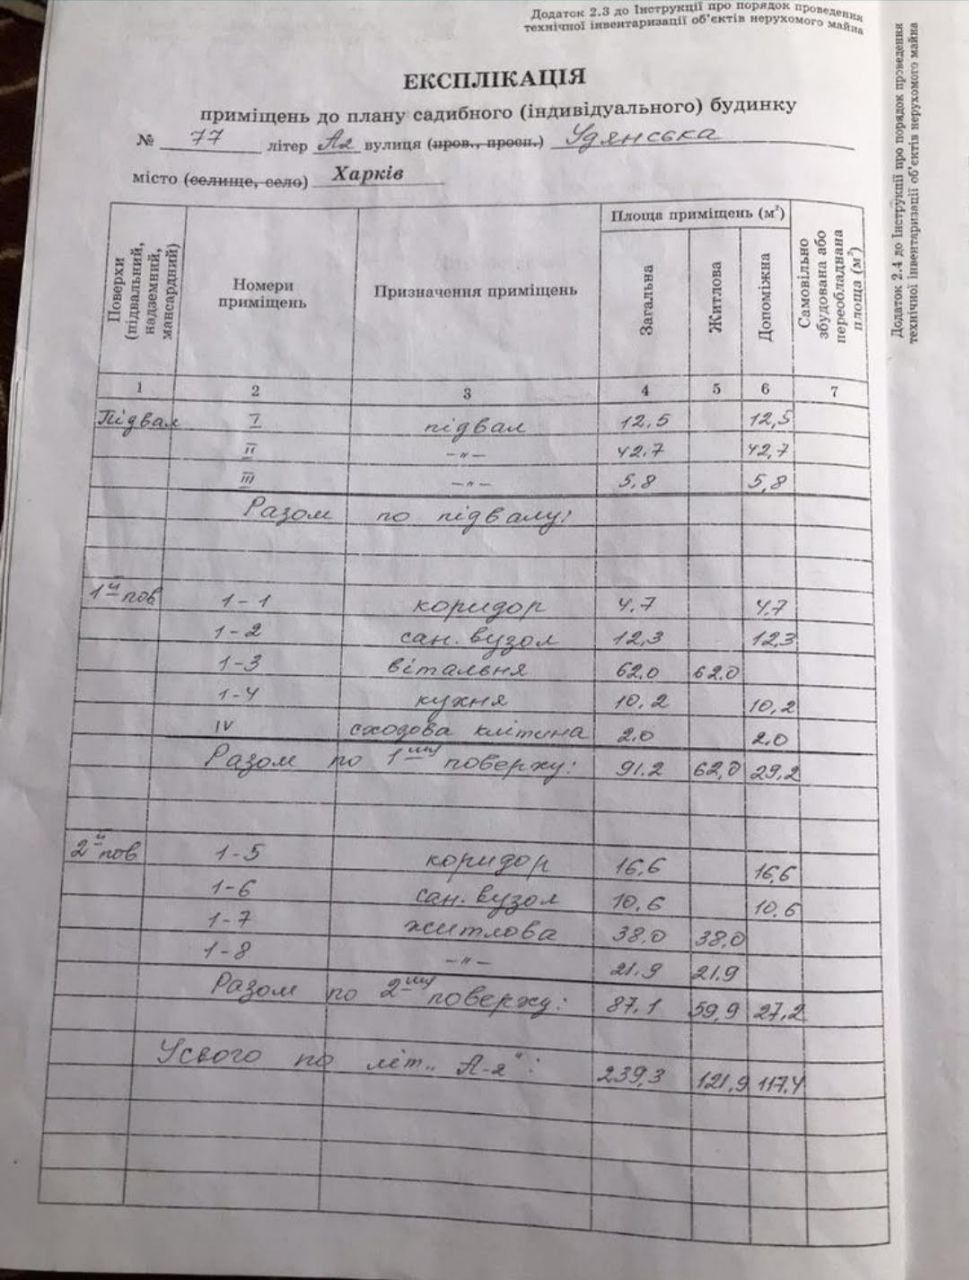 Додаток 2.3 до Інструкції про порядок проведення
технічної інвентаризації об'єктів нерухомого майна
Додаток 2.4 до Інструкції про порядок проведення
технічної інвентаризації об'єктів нерухомого майна
ЕКСПЛІКАЦІЯ
приміщень до плану садибного (індивідуального) будинку
№ 77 літер Ая вулиця (пров., просп.) Удянська
місто (селище, село) Харків
Поверхи (підвальний, надземний, мансардний)
Номери приміщень
Призначення приміщень
Площа приміщень (м²)
Загальна
Житлова
Допоміжна
Самовільно збудована або переобладнана площа (м²)
1 2 3 4 5 6 7
Підвал I підвал 12,5 12,5
II –"– 42.7 42,7
III –"– 5,8 5,8
Разом по підвалу:
1й пов 1-1 коридор 4.7 4.7
1-2 сан. вузол 12,3 12,3
1-3 вітальня 62.0 62.0
1-4 кухня 10,2 10,2
IV сходова клітина 2.0 2.0
Разом по 1му поверху: 91.2 62,0 29,2
2й пов 1-5 коридор 16,6 16,6
1-6 сан. вузол 10.6 10.6
1-7 житлова 38,0 38,0
1-8 –"– 21.9 21.9
Разом по 2му поверху: 87.1 59,9 27,2
Усього по літ. „А-я": 239,3 121,9 117,4